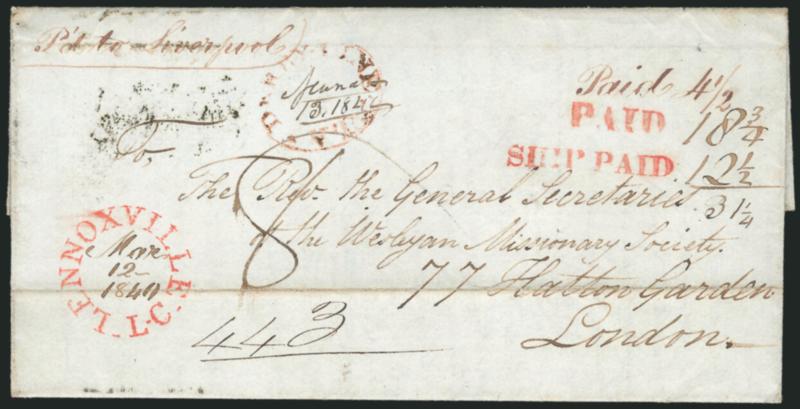 Pd to Liverpool
13. 1840
Paid 4 1/2
PAID
18 3/4
SHIP PAID
12 1/2
31 1/4
To,
The Revd. the General Secretaries
of the Wesleyan Missionary Society.
77 Hatton Garden
London.
8
LENNOXVILLE
12
1840
L·C·
443